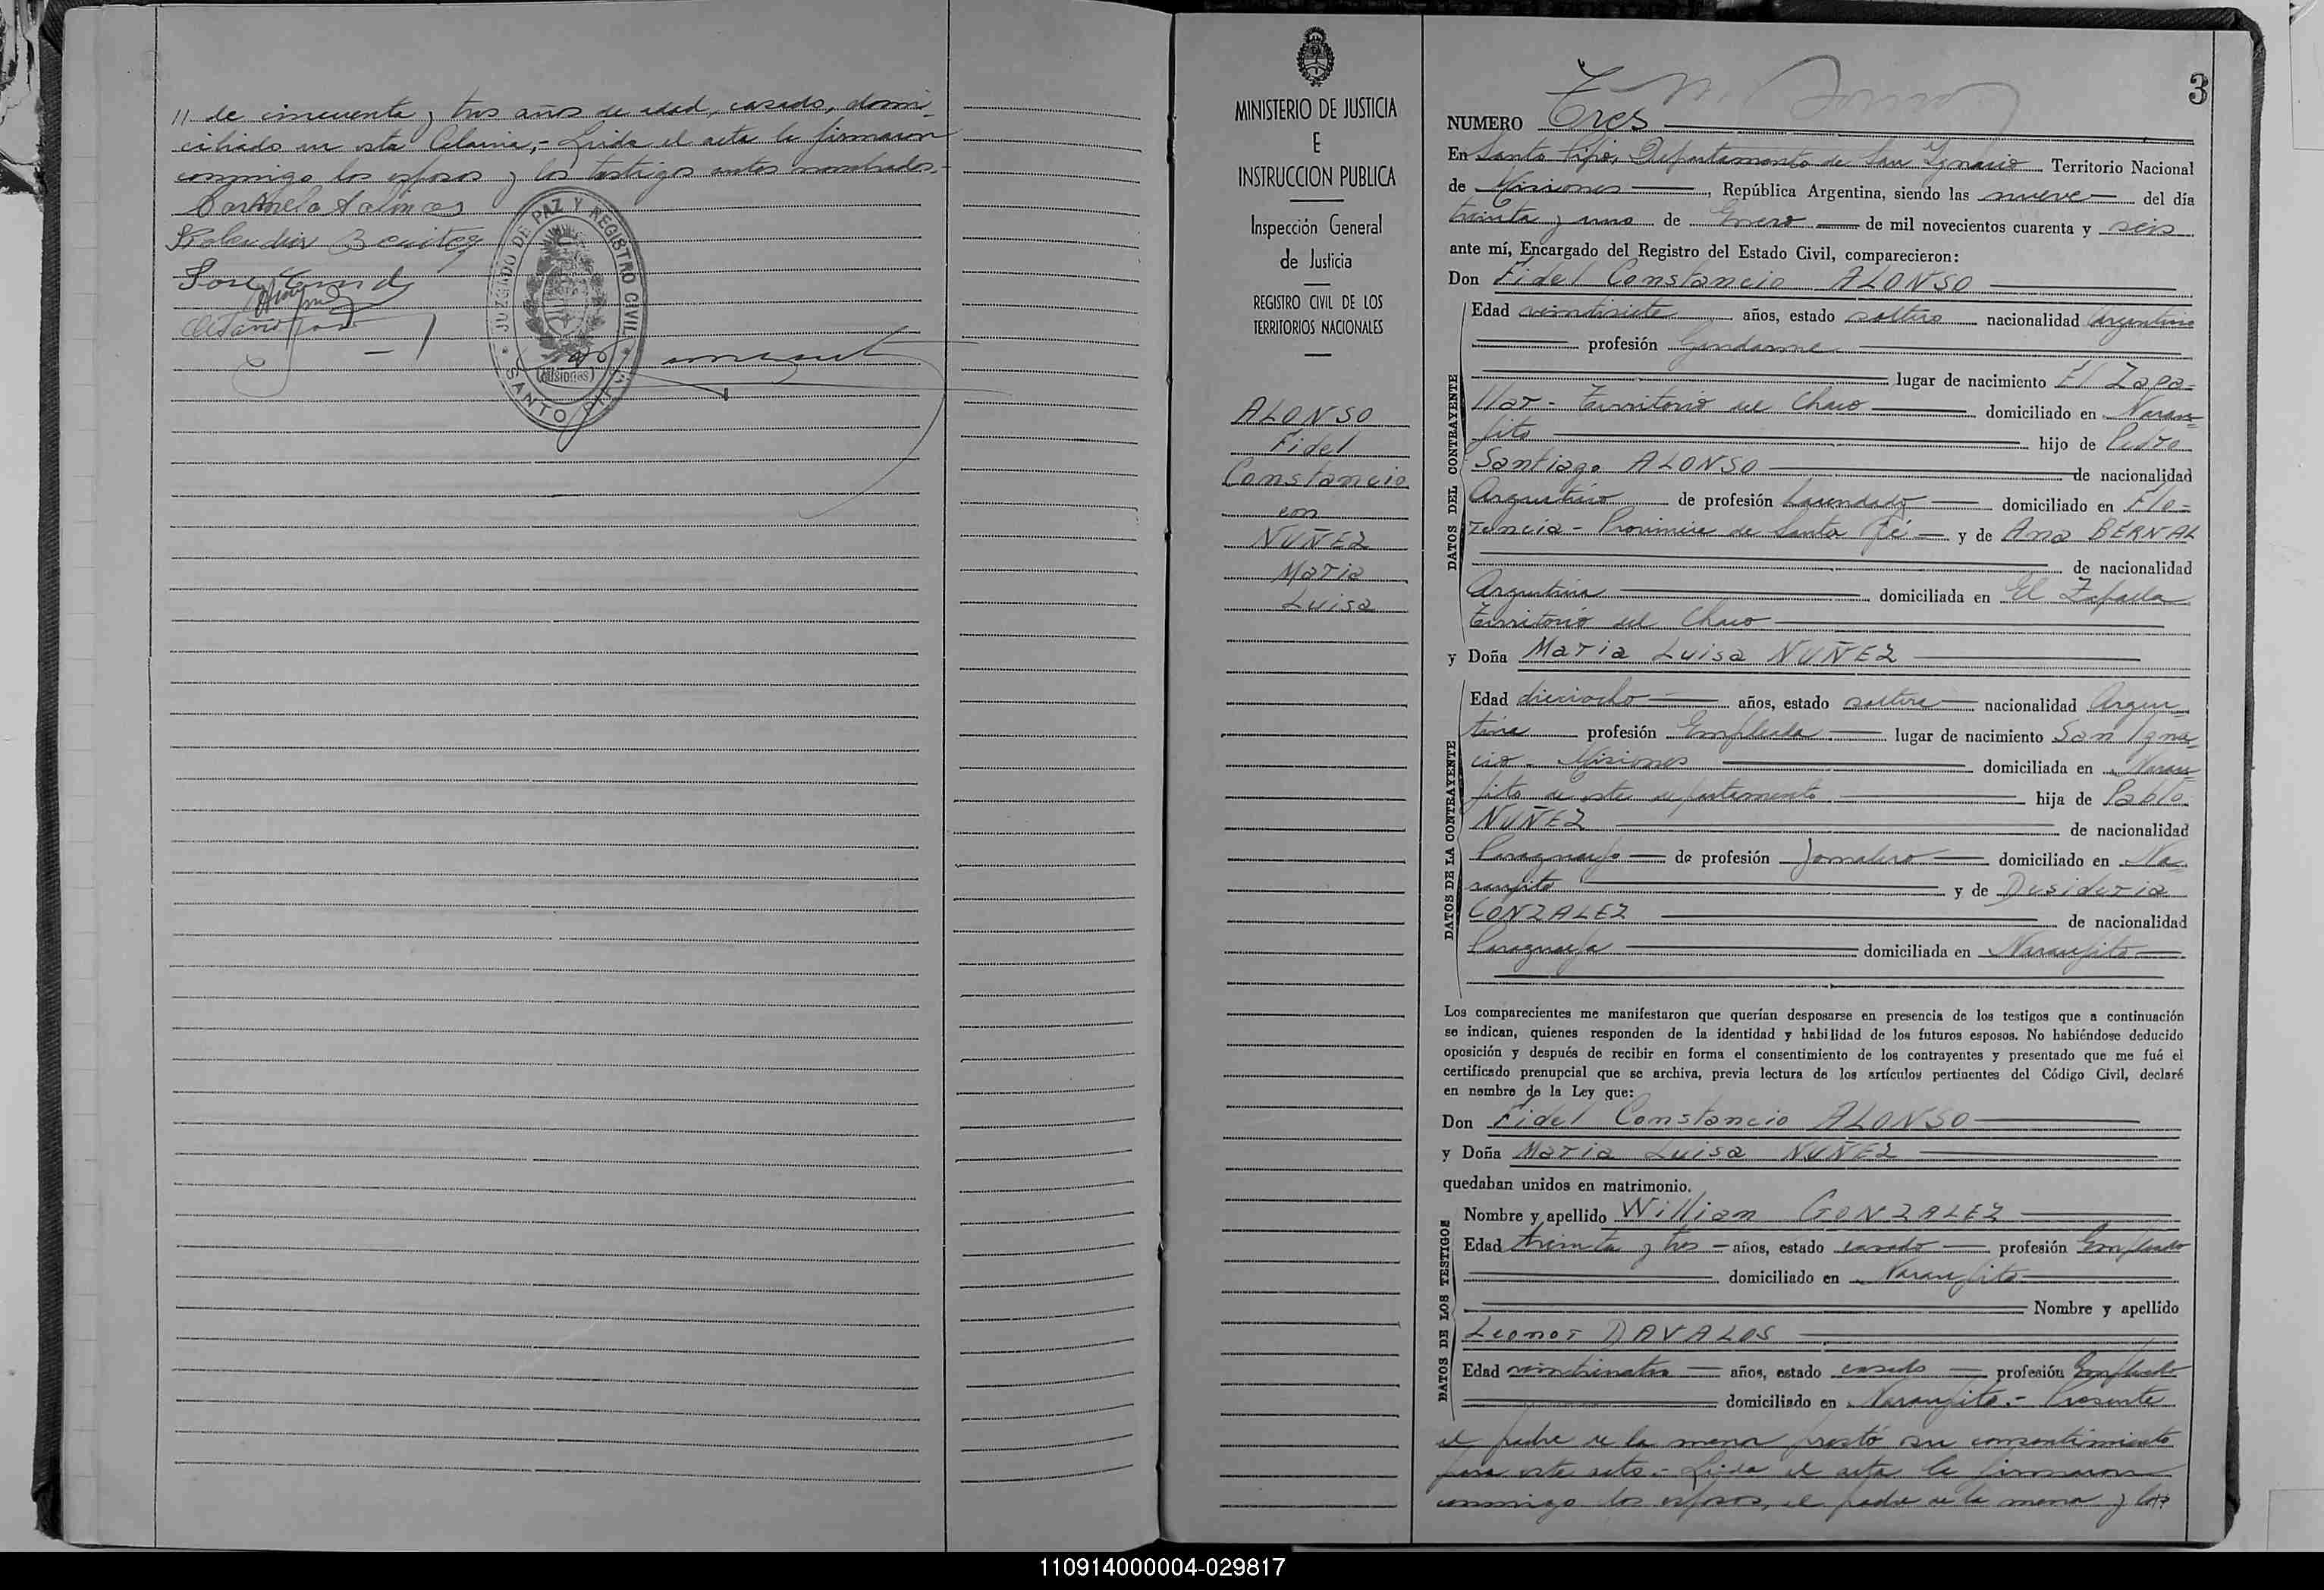 // de cincuenta y tres años de edad, casado, domi-
ciliado en esta Colonia,- Leida el acta la firmaron
conmigo los esposos y los testigos antes nombrados.-
JUZGADO DE PAZ Y REGISTRO CIVIL
(Misiones)
SANTO PIPÓ
MINISTERIO DE JUSTICIA
E
INSTRUCCION PUBLICA
Inspección General
de Justicia
REGISTRO CIVIL DE LOS
TERRITORIOS NACIONALES
ALONSO
Fidel
Constancio
con
NUÑEZ
Maria
Luisa
3
NUMERO Tres
En Santo Pipó, Departamento de San Ignacio Territorio Nacional
de Misiones, República Argentina, siendo las nueve del día
treinta y uno de Enero de mil novecientos cuarenta y seis
ante mí, Encargado del Registro del Estado Civil, comparecieron:
Don Fidel Constancio ALONSO
DATOS DEL CONTRAYENTE
Edad veintisiete años, estado soltero nacionalidad Argentino
profesión Gendarme
lugar de nacimiento El Zapa-
llar - Territorio del Chaco domiciliado en Naran-
jito hijo de Pedro
Santiago ALONSO de nacionalidad
Argentino de profesión hacendado domiciliado en Flo-
rencia - Provincia de Santa Fé y de Ana BERNAL
de nacionalidad
Argentina domiciliada en El Zapalla
Territorio del Chaco
y Doña Maria Luisa NUÑEZ
DATOS DE LA CONTRAYENTE
Edad dieciocho años, estado soltera nacionalidad Argen-
tina profesión Empleada lugar de nacimiento San Igna-
cio - Misiones domiciliada en Naran-
jito de este departamento hija de Pablo
NUÑEZ de nacionalidad
Paraguayo de profesión Jornalero domiciliado en Na-
ranjito y de Desideria
GONZALEZ de nacionalidad
Paraguaya domiciliada en Naranjito
Los comparecientes me manifestaron que querían desposarse en presencia de los testigos que a continuación
se indican, quienes responden de la identidad y habilidad de los futuros esposos. No habiéndose deducido
oposición y después de recibir en forma el consentimiento de los contrayentes y presentado que me fué el
certificado prenupcial que se archiva, previa lectura de los artículos pertinentes del Código Civil, declaré
en nombre de la Ley que:
Don Fidel Constancio ALONSO
y Doña Maria Luisa NUÑEZ
quedaban unidos en matrimonio.
DATOS DE LOS TESTIGOS
Nombre y apellido Willian GONZALEZ
Edad treinta y tres años, estado casado profesión Empleado
domiciliado en Naranjito
Nombre y apellido
Leonor DAVALOS
Edad veinticuatro años, estado casado profesión Empleado
domiciliado en Naranjito.- Presente
el padre de la menor prestó su consentimiento
para este acto.- Leida el acta la firmaron
conmigo los esposos, el padre de la menor y los
110914000004-029817